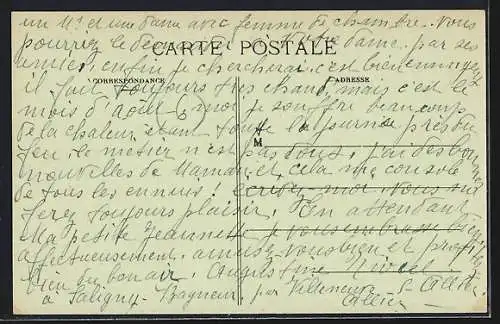 un Mr et une dame avec femme de chambre. Vous
pourriez le demander à dame. par ses
CARTE POSTALE
amies, enfin je chercherai, c'est bien ennuyeux
CORRESPONDANCE
ADRESSE
il fait toujours très chaud, mais c'est le
mois d'août & moi je souffre beaucoup
de la chaleur étant toute la journée près du
M
feu, le métier n'est pas doux, j'ai des bonnes
nouvelles de Maman, et cela me console
de tous les ennuis! écrivez-moi vous me
ferez toujours plaisir. En attendant
Ma petite Jeannette je vous embrasse bien
affectueusement, amusez-vous bien et profitez
bien du bon air. Augustine
à Saligny - par Allier